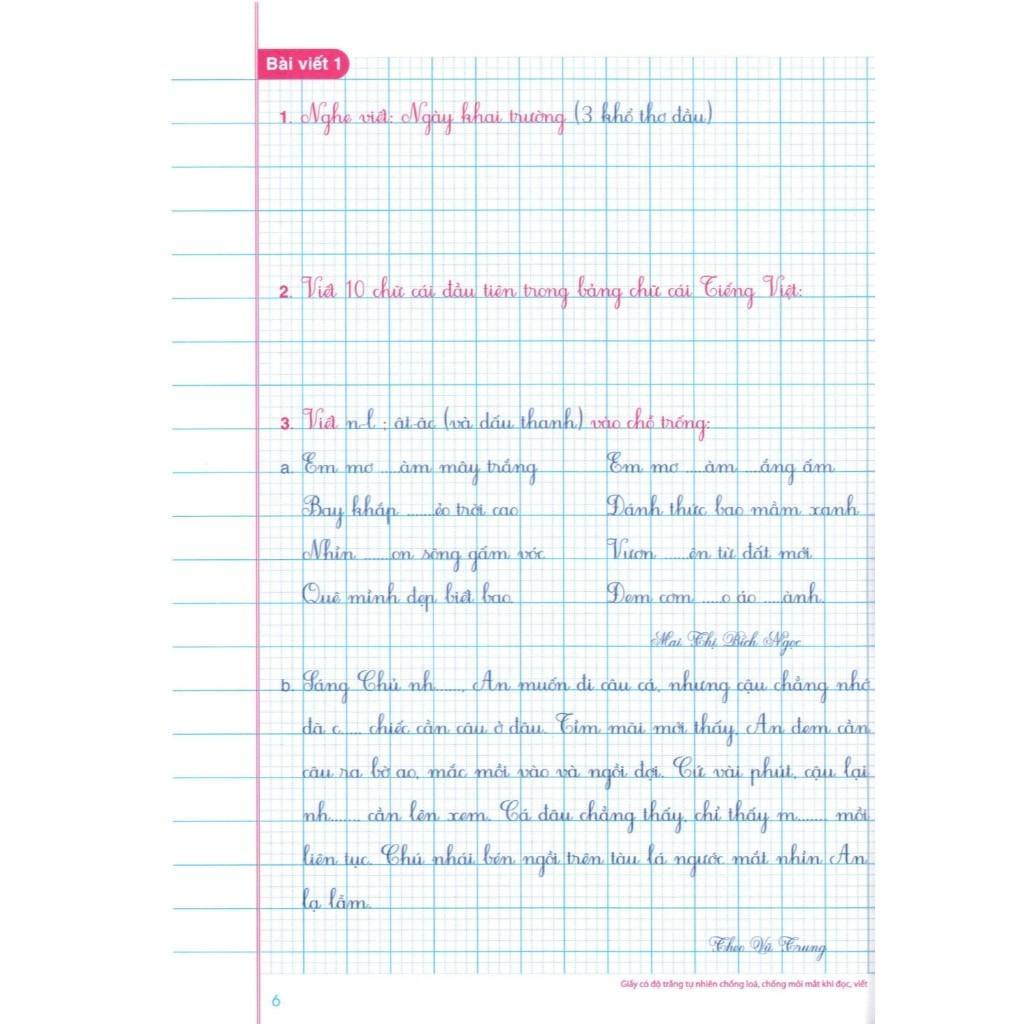 Bài viết 1
1. Nghe viết: Ngày khai trường (3 khổ thơ đầu)
2. Viết 10 chữ cái đầu tiên trong bảng chữ cái Tiếng Việt:
3. Viết n-l ; ât-âc (và dấu thanh) vào chỗ trống:
a. Em mơ ....àm mây trắng
Bay khắp ......ẻo trời cao
Nhìn ......on sông gấm vóc
Quê mình đẹp biết bao.
Em mơ ....àm ....ắng ấm
Đánh thức bao mầm xanh
Vươn ......ên từ đất mới
Đem cơm ....o áo ....ành.
Mai Thị Bích Ngọc
b. Sáng Chủ nh......, An muốn đi câu cá, nhưng cậu chẳng nhớ
đã c..... chiếc cần câu ở đâu. Tìm mãi mới thấy, An đem cần
câu ra bờ ao, mắc mồi vào và ngồi đợi. Cứ vài phút, cậu lại
nh....... cần lên xem. Cá đâu chẳng thấy, chỉ thấy m....... mồi
liên tục. Chú nhái bén ngồi trên tàu lá ngước mắt nhìn An
lạ lẫm.
Theo Vũ Trung
Giấy có độ trắng tự nhiên chống loá, chống mỏi mắt khi đọc, viết
6